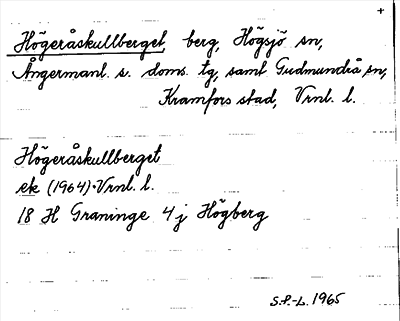 +
Högeråskullberget, berg, Högsjö sn,
Ångermanl. s. doms. tg, samt Gudmundrå sn,
Kramfors stad, Vrnl. l.
Högeråskullberget
ek (1964) Vrnl. l.
18 H Graninge 4 j Högberg
S.P.-L. 1965